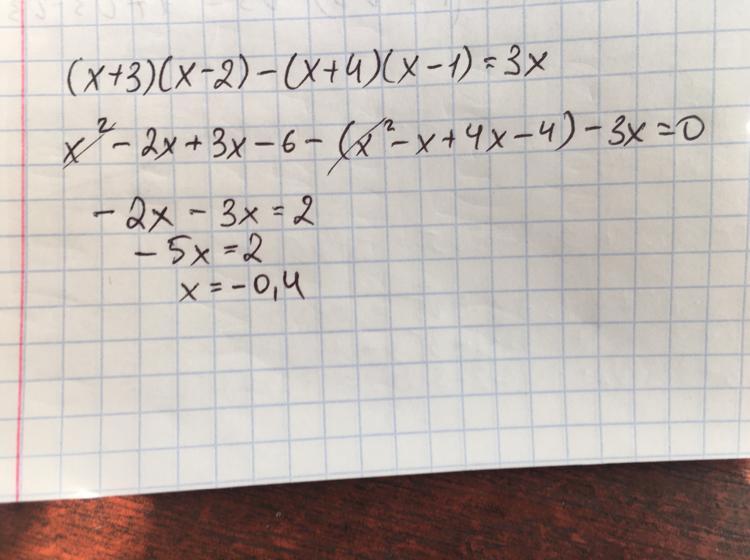 (x+3)(x-2)-(x+4)(x-1)=3x
x²-2x+3x-6-(x²-x+4x-4)-3x=0
-2x-3x=2
-5x=2
x=-0,4